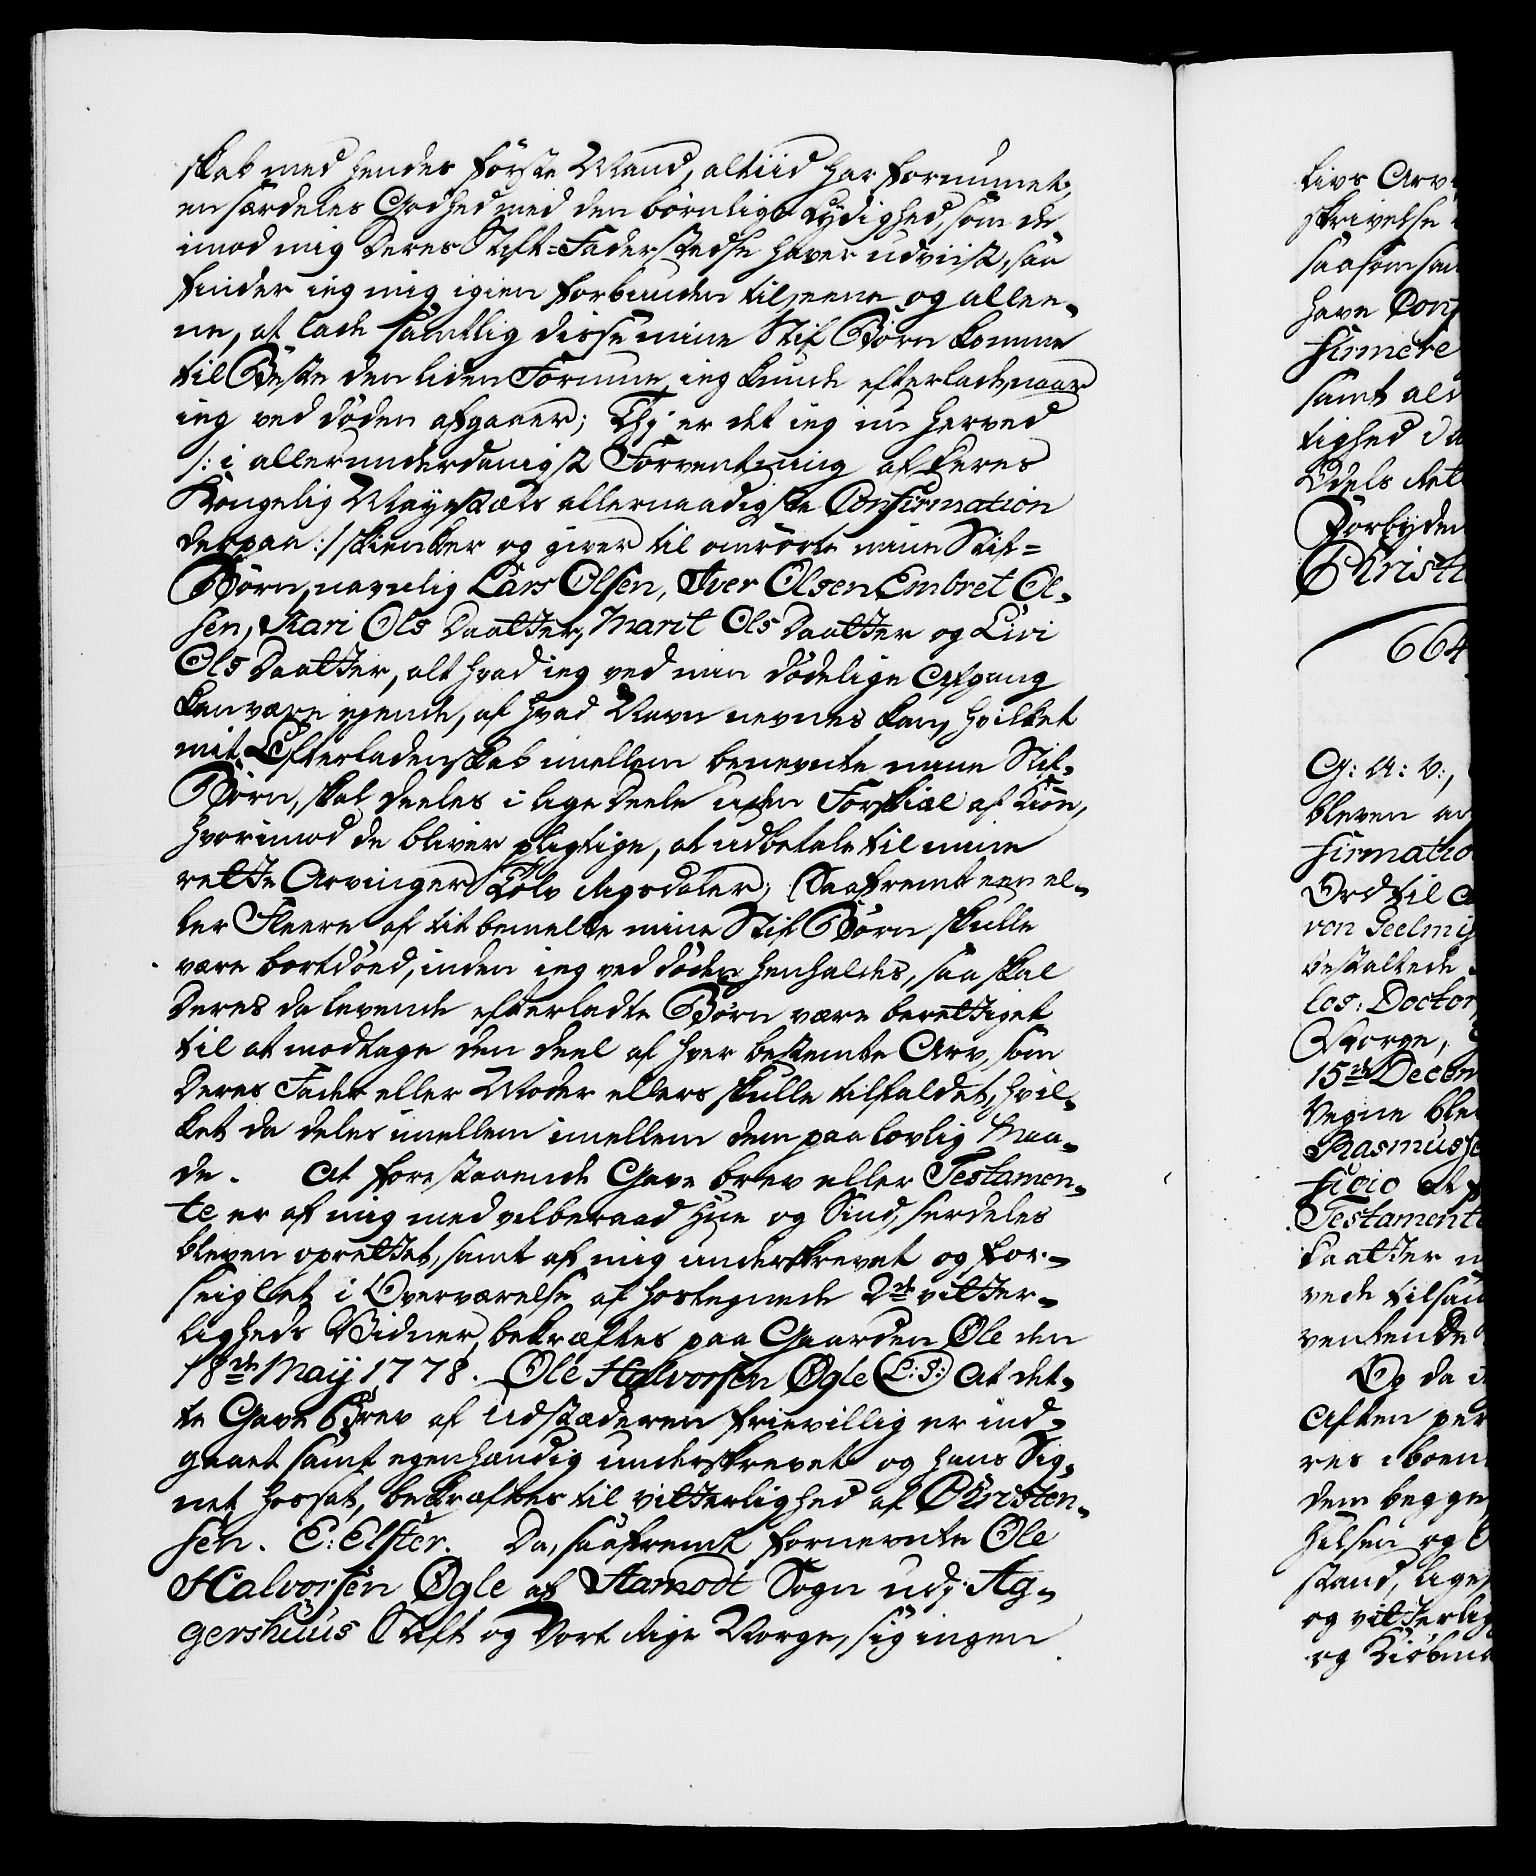 skab med hendes første Mand, altiid har fornummet,
en særdeles Godhed med den børnlige Lydighed, som de
imod mig Deres Stif-Fader stedse haver udviist, saa
finder ieg mig igien forbunden til, eene og allee-
ne, at lade samtlig disse mine Stif Børn komme
til Beste den liden Formue, ieg kunde efterlade, naar
ieg ved døden afgaaer; Thi er det ieg nu herved
/: i allerunderdanigst Forventning af Deres
Kongelig Mayestæts allernaadigste Confirmation
derpaa :/ skienker og giver til omrørte mine Stif-
Børn, navnlig Lars Olsen, Iver Olsen Embret Ol-
sen, Kari Ols Daatter, Marit Ols Daatter og Livi
Ols Daatter, alt hvad ieg ved min dødelige Afgang
kan være eyende, af hvad Navn nevnes kan, hvilket
mit Efterladenskab imellem benevnte mine Stif-
Børn, skal deeles i lige Deele uden Forskiæl af Kiøn,
hvorimod de bliver pligtige, at udbetale til mine
rette Arvinger Tolv Rigsdaler; Saafremt een el-
ler Fleere af tit bemelte mine Stif Børn skulle
være bortdøed, inden ieg ved døden henkaldes, saa skal
Deres da levende efterladte Børn være berettiget
til at modtage den deel af hver bestemte Arv, som
Deres Fader eller Moder ellers skulle tilfaldet, hvil-
ket da deles imellem imellem dem paa lovlig Maa-
de. At forestaaende Gave brev eller Testamen-
te er af mig med velberaad Hue og Sind, serdeles
bleven oprettet, samt af mig underskrevet og for-
seiglet i Overværelse af hostegnede 2de vitter-
ligheds Vidner, bekræftes paa Gaarden Øle den
18de Maij 1778. Ole Halvorsen Øgle (L:S:) At det-
te Gave Brev af Udstæderen frievillig er ind-
gaaet samt egenhændig underskrevet og hans Sig-
net hossat, bekræftes til vitterlighed af Christen-
sen. E: Elster. Da, saafremt fornevnte Ole
Halvorsen Øgle af Aamodt Sogn udj Ag-
gershuus Stift og Vort Rige Norge, sig ingen
livs Arv
skrivelse
saasom saa
have Con
firmere
samt al
tighed
Odels Ret
Forbyden
Christi
664
G: A: V:,
bleven an
firmatio
Ord til
von Geelmij
bestaltede
los: Doctor
Norge,
15de Decem
Vegne ble
Rasmusse
ficio et
Testament
Daatter
vede tilsam
ventende
Og da
Aften per
res iboen
dem begge
Hilsen og
stand, lige
og vitterlig
og Kiøbma